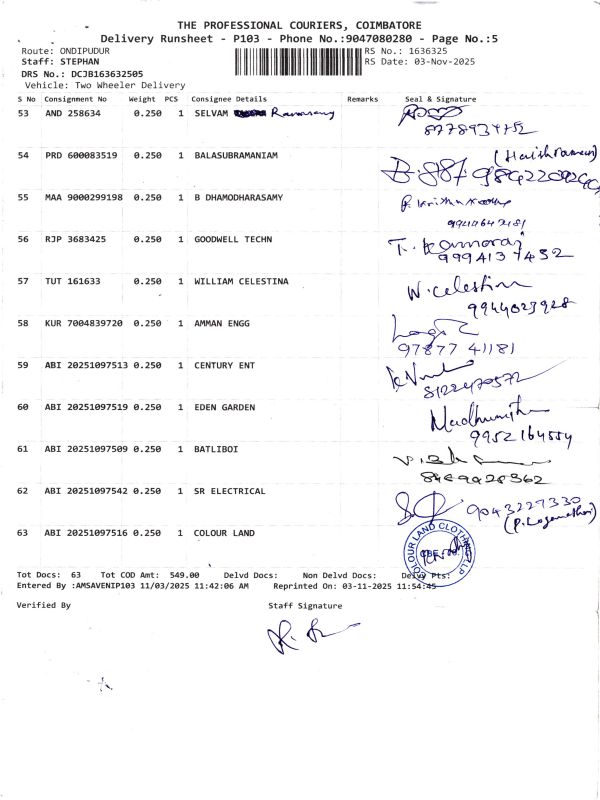 THE PROFESSIONAL COURIERS, COIMBATORE
Delivery Runsheet - P103 - Phone No.:9047080280 - Page No.:5
Route: ONDIPUDUR RS No.: 1636325
Staff: STEPHAN RS Date: 03-Nov-2025
DRS No.: DCJB163632505
Vehicle: Two Wheeler Delivery
S No Consignment No Weight PCS Consignee Details Remarks Seal & Signature
53 AND 258634 0.250 1 SELVAM Ramasamy
8778934752
54 PRD 600083519 0.250 1 BALASUBRAMANIAM
55 MAA 9000299198 0.250 1 B DHAMODHARASAMY
56 RJP 3683425 0.250 1 GOODWELL TECHN
9994137452
57 TUT 161633 0.250 1 WILLIAM CELESTINA W. Celestina
9944023928
58 KUR 7004839720 0.250 1 AMMAN ENGG
97877 41181
59 ABI 20251097513 0.250 1 CENTURY ENT
8122470572
60 ABI 20251097519 0.250 1 EDEN GARDEN
9952164554
61 ABI 20251097509 0.250 1 BATLIBOI
62 ABI 20251097542 0.250 1 SR ELECTRICAL 9043227330
63 ABI 20251097516 0.250 1 COLOUR LAND
COLOUR LAND CLOTHING LLP
Tot Docs: 63 Tot COD Amt: 549.00 Delvd Docs: Non Delvd Docs: Delvy Pts:
Entered By :AMSAVENIP103 11/03/2025 11:42:06 AM Reprinted On: 03-11-2025 11:54:45
Verified By Staff Signature